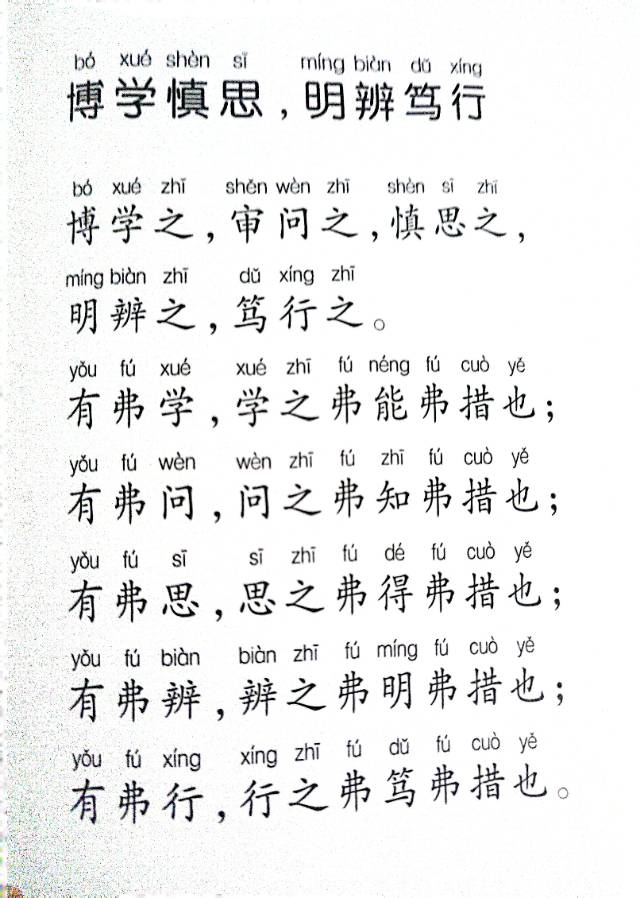 bó xué shèn sī míng biàn dǔ xíng
博学慎思，明辨笃行
bó xué zhī shěn wèn zhī shèn sī zhī
博学之，审问之，慎思之，
míng biàn zhī dǔ xíng zhī
明辨之，笃行之。
yǒu fú xué xué zhī fú néng fú cuò yě
有弗学，学之弗能弗措也；
yǒu fú wèn wèn zhī fú zhī fú cuò yě
有弗问，问之弗知弗措也；
yǒu fú sī sī zhī fú dé fú cuò yě
有弗思，思之弗得弗措也；
yǒu fú biàn biàn zhī fú míng fú cuò yě
有弗辨，辨之弗明弗措也；
yǒu fú xíng xíng zhī fú dǔ fú cuò yě
有弗行，行之弗笃弗措也。